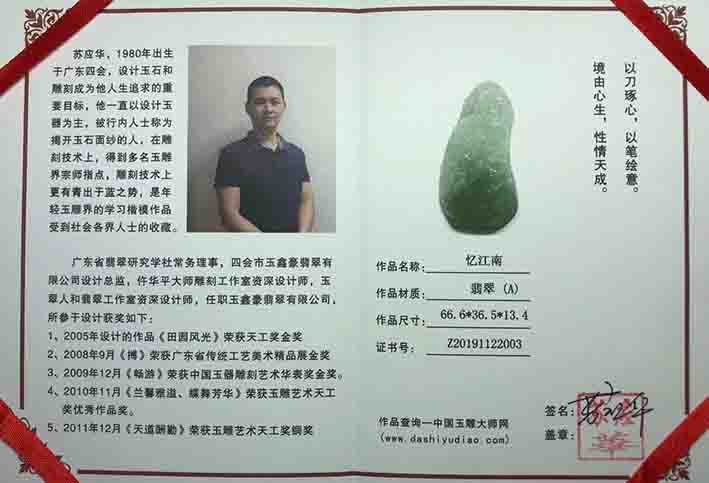 苏应华，1980年出生
于广东四会，设计玉石和
雕刻成为他人生追求的重
要目标，他一直以设计玉
器为主，被行内人士称为
揭开玉石面纱的人，在雕
刻技术上，得到多名玉雕
界宗师指点，雕刻技术上
更有青出于蓝之势，是年
轻玉雕界的学习楷模作品
受到社会各界人士的收藏。
广东省翡翠研究学社常务理事，四会市玉鑫豪翡翠有
限公司设计总监，仵华平大师雕刻工作室资深设计师，玉
翠人和翡翠工作室资深设计师，任职玉鑫豪翡翠有限公司，
所参于设计获奖如下：
1、2005年设计的作品《田园风光》荣获天工奖金奖
2、2008年9月《搏》荣获广东省传统工艺美术精品展金奖
3、2009年12月《畅游》荣获中国玉器雕刻艺术华表奖金奖。
4、2010年11月《兰馨雅溢、蝶舞芳华》荣获玉雕艺术天工
奖优秀作品奖。
5、2011年12月《天道酬勤》荣获玉雕艺术天工奖铜奖
以刀琢心，以笔绘意。
境由心生，性情天成。
作品名称：忆江南
作品材质：翡翠（A）
作品尺寸：66.6*36.5*13.4
证书号：Z20191122003
作品查询—中国玉雕大师网
(www.dashiyudiao.com)
签名：苏应华
盖章：